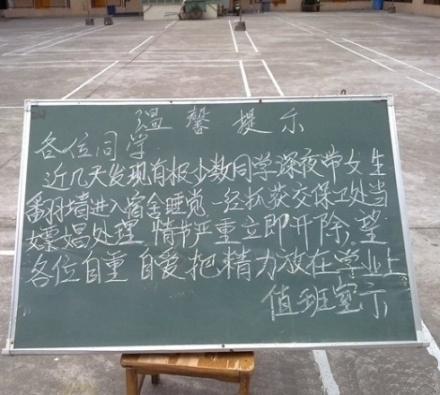 温馨提示
各位同学
近几天发现有极少数同学深夜带女生
翻墙进入宿舍睡觉 一经抓获交保卫处当
嫖娼处理 情节严重立即开除,望
各位自重 自爱把精力放在学业上
值班室示